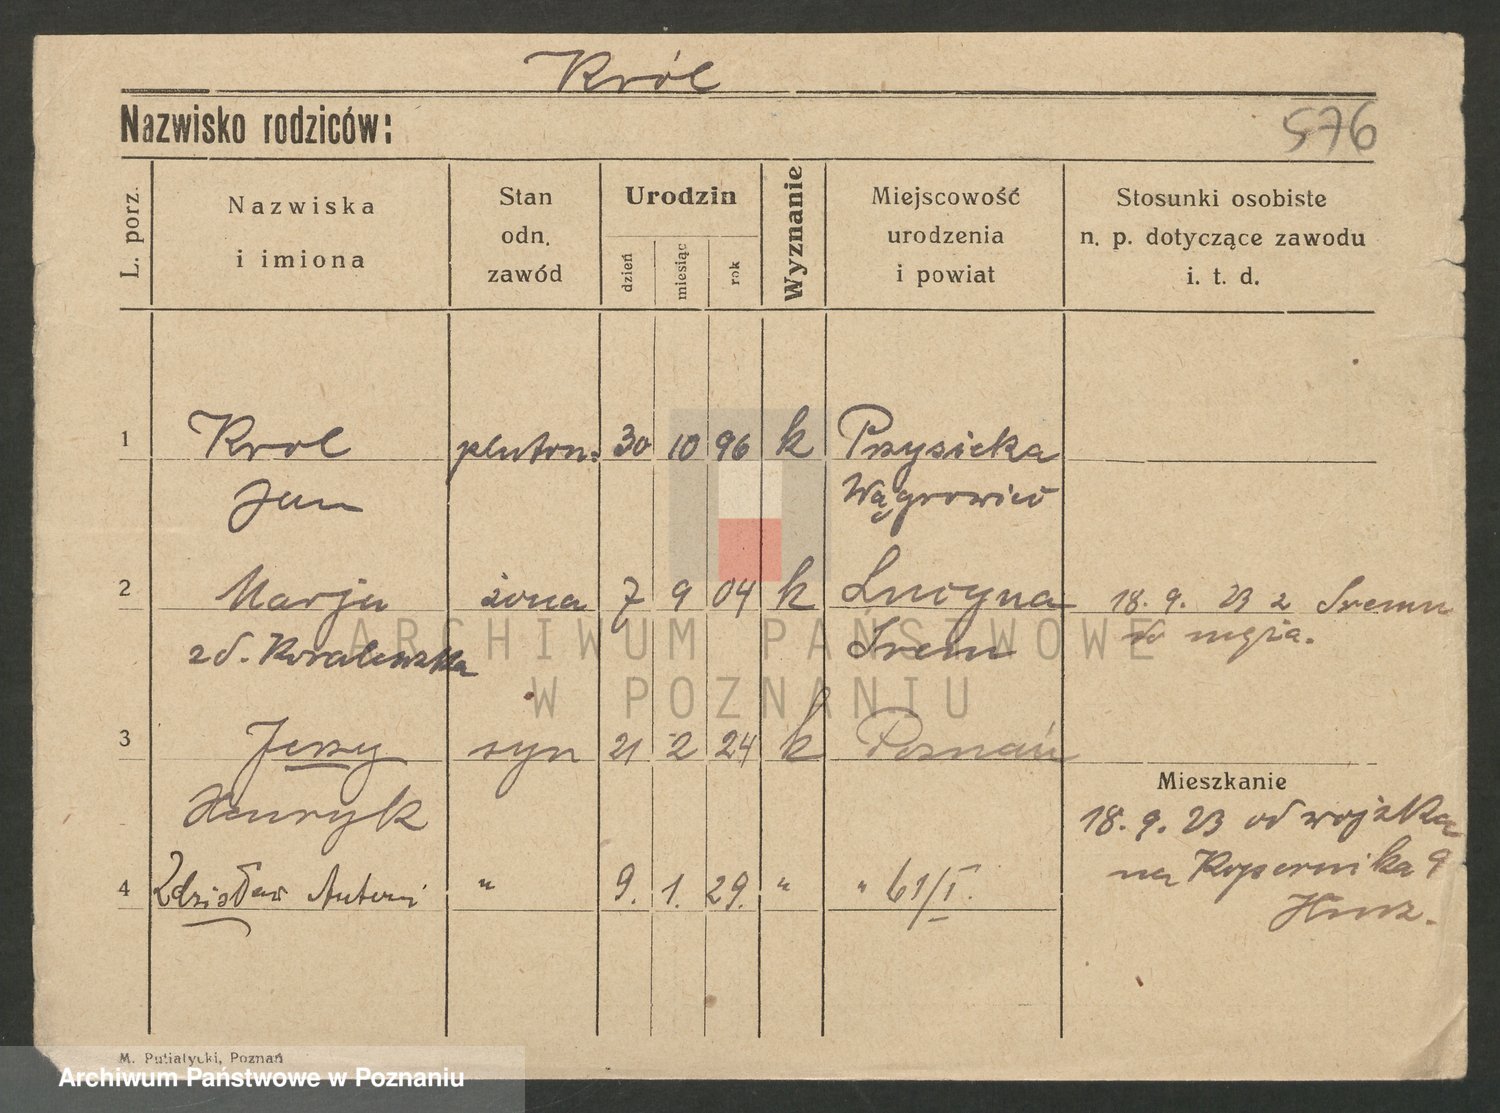 Król
Nazwisko rodziców:
576
L. porz.
Nazwiska
i imiona
Stan
odn.
zawód
Urodzin
dzień
miesiąc
rok
Wyznanie
Miejscowość
urodzenia
i powiat
Stosunki osobiste
n. p. dotyczące zawodu
i. t. d.
1 Krol pluton: 30 10 96 k Przysieka
Jan Wągrowiec
2 Marja żona 7 9 04 k 18. 9. 23 z Sremu
zd. Kovalewska Srem do męża.
3 Jerzy syn 21 2 24 k Poznań
Henryk
Mieszkanie
18. 9. 23 od wojska
4 Zdzisław Antoni " 9. 1. 29. " " 61/I.
na Kopernika 9
ARCHIWUM PAŃSTWOWE
W POZNANIU
M. Putiatycki, Poznań
Archiwum Państwowe w Poznaniu